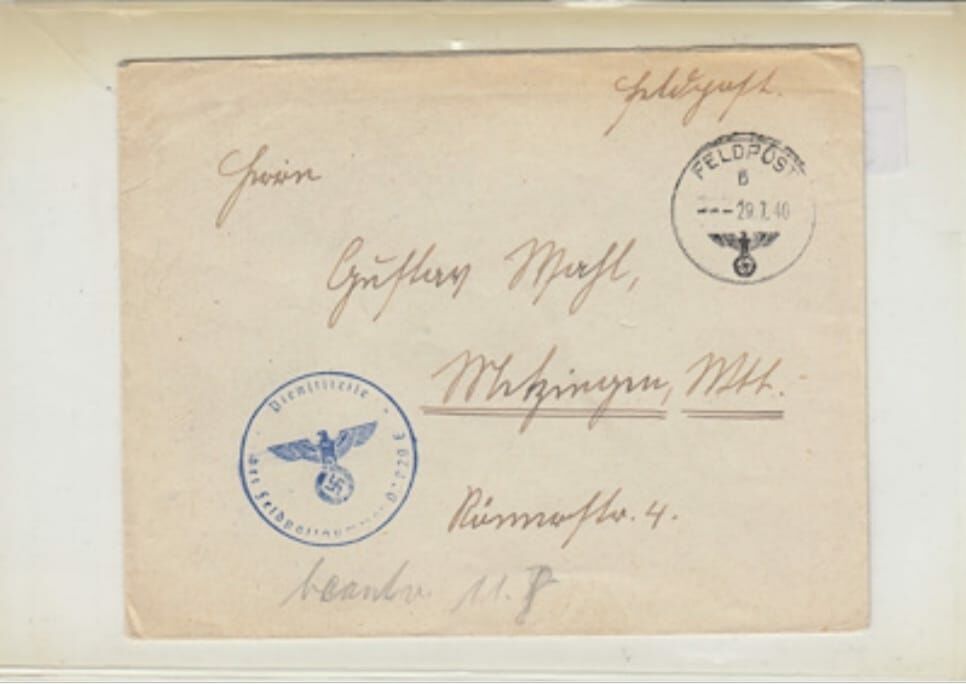 Feldpost.
FELDPOST
b
--- 29.7.40
Herrn
Gustav Wahl,
Metzingen, Wtt.
Dienststelle
der Feldpostnummer
Römerstr. 4.
beantw. 11.8